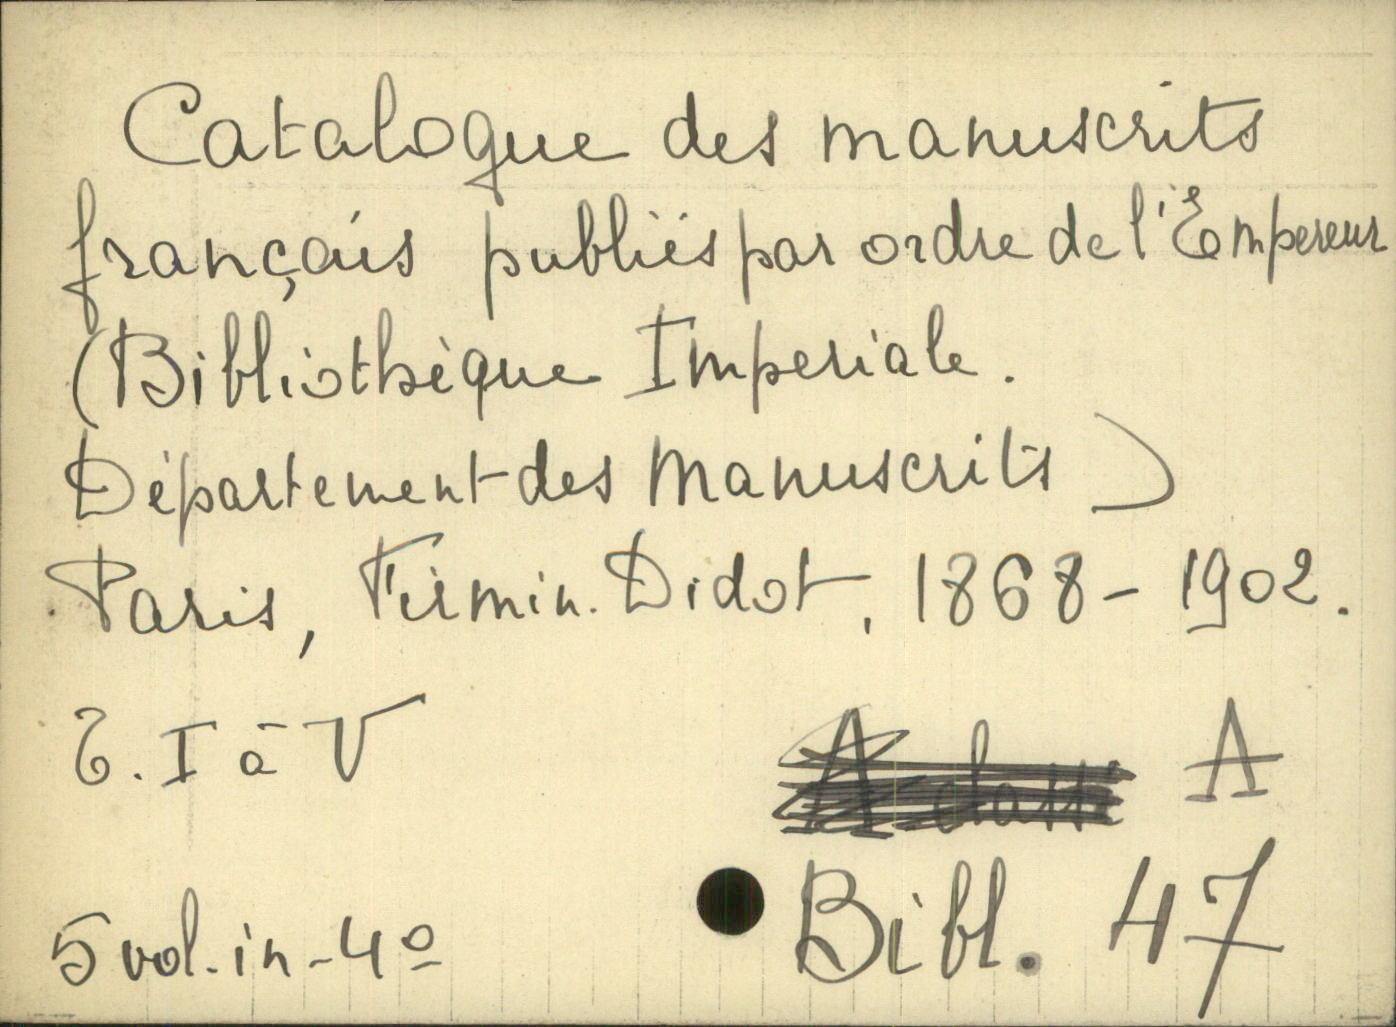 Catalogue des manuscrits
français publiés par ordre de l'Empereur
(Bibliothèque Imperiale.
Département des Manuscrits)
Paris, Firmin. Didot, 1868-1902.
T. I à V
A
5 vol. in-4º
Bibl. 47